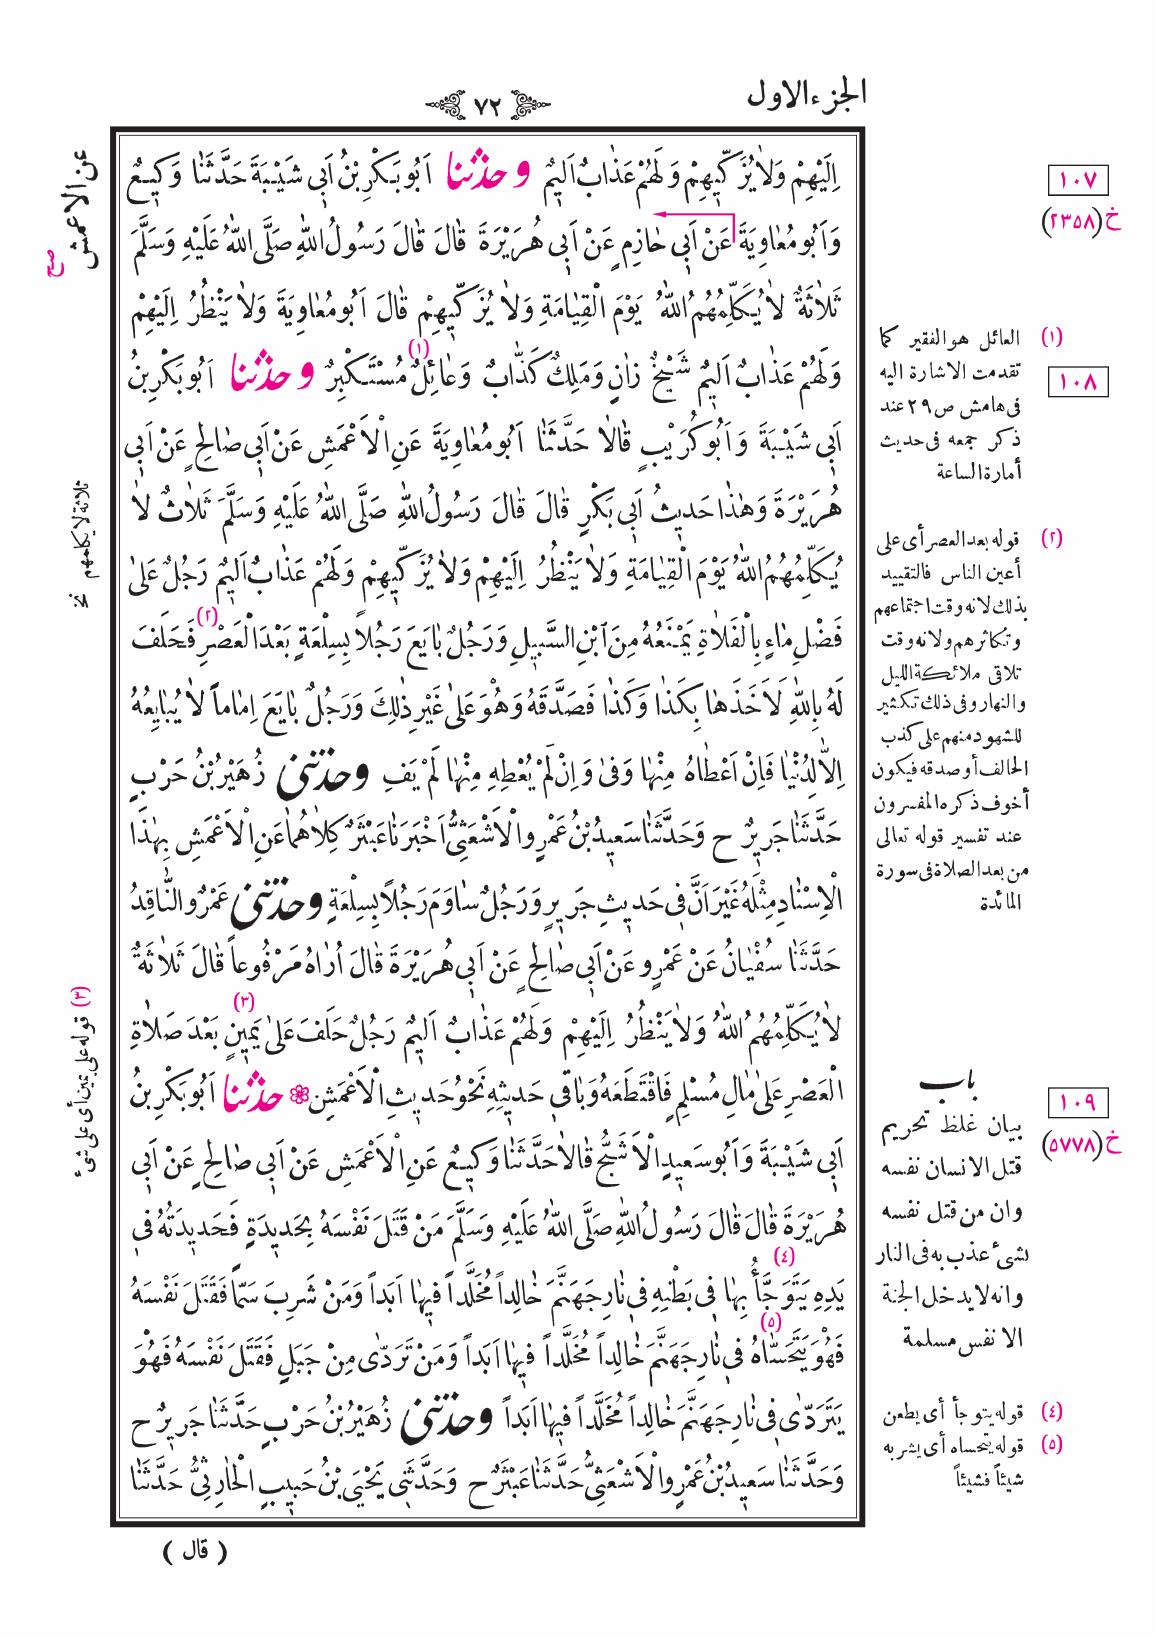 الجزء الاول
٧٢
اِلَيْهِمْ وَلَا يُزَكّيهِمْ وَلَهُمْ عَذَابٌ اَليمٌ وحدثنا اَبُو بَكْرِ بْنُ اَبي شَيْبَةَ حَدَّثَنَا وَكيعٌ
وَاَبُو مُعَاوِيَةَ عَنْ اَبي حَازِمٍ عَنْ اَبي هُرَيْرَةَ قَالَ قَالَ رَسُولُ اللّٰهِ صَلَّى اللّٰهُ عَلَيْهِ وَسَلَّمَ
ثَلَاثَةٌ لَا يُكَلِّمُهُمُ اللّٰهُ يَوْمَ الْقِيَامَةِ وَلَا يُزَكّيهِمْ قَالَ اَبُو مُعَاوِيَةَ وَلَا يَنْظُرُ اِلَيْهِمْ
وَلَهُمْ عَذَابٌ اَليمٌ شَيْخٌ زَانٍ وَمَلِكٌ كَذَّابٌ وَعَائِلٌ (١) مُسْتَكْبِرٌ وحدثنا اَبُو بَكْرِ بْنُ
اَبي شَيْبَةَ وَاَبُو كُرَيْبٍ قَالَا حَدَّثَنَا اَبُو مُعَاوِيَةَ عَنِ الْاَعْمَشِ عَنْ اَبي صَالِحٍ عَنْ اَبي
هُرَيْرَةَ وَهٰذَا حَديثُ اَبي بَكْرٍ قَالَ قَالَ رَسُولُ اللّٰهِ صَلَّى اللّٰهُ عَلَيْهِ وَسَلَّمَ ثَلَاثٌ لَا
يُكَلِّمُهُمُ اللّٰهُ يَوْمَ الْقِيَامَةِ وَلَا يَنْظُرُ اِلَيْهِمْ وَلَا يُزَكّيهِمْ وَلَهُمْ عَذَابٌ اَليمٌ رَجُلٌ عَلىٰ
فَضْلِ مَاءٍ بِالْفَلَاةِ يَمْنَعُهُ مِنَ ابْنِ السَّبيلِ وَرَجُلٌ بَايَعَ رَجُلاً بِسِلْعَةٍ بَعْدَ الْعَصْرِ (٢) فَحَلَفَ
لَهُ بِاللّٰهِ لَاَخَذَهَا بِكَذَا وَكَذَا فَصَدَّقَهُ وَهْوَ عَلىٰ غَيْرِ ذٰلِكَ وَرَجُلٌ بَايَعَ اِمَاماً لَا يُبَايِعُهُ
اِلَّا لِدُنْيَا فَاِنْ اَعْطَاهُ مِنْهَا وَفىٰ وَاِنْ لَمْ يُعْطِهِ مِنْهَا لَمْ يَفِ وحدثنى زُهَيْرُ بْنُ حَرْبٍ
حَدَّثَنَا جَريرٌ ح وَحَدَّثَنَا سَعيدُ بْنُ عَمْرٍو الْاَشْعَثِيُّ اَخْبَرَنَا عَبْثَرٌ كِلَاهُمَا عَنِ الْاَعْمَشِ بِهٰذَا
الْاِسْنَادِ مِثْلَهُ غَيْرَ اَنَّ في حَديثِ جَريرٍ وَرَجُلٌ سَاوَمَ رَجُلاً بِسِلْعَةٍ وحدثنى عَمْرٌو النَّاقِدُ
حَدَّثَنَا سُفْيَانُ عَنْ عَمْرٍو عَنْ اَبي صَالِحٍ عَنْ اَبي هُرَيْرَةَ قَالَ اُرَاهُ مَرْفُوعاً قَالَ ثَلَاثَةٌ
لَا يُكَلِّمُهُمُ اللّٰهُ وَلَا يَنْظُرُ اِلَيْهِمْ وَلَهُمْ عَذَابٌ اَليمٌ رَجُلٌ حَلَفَ عَلىٰ يَمينٍ (٣) بَعْدَ صَلَاةِ
الْعَصْرِ عَلىٰ مَالِ مُسْلِمٍ فَاقْتَطَعَهُ وَبَاقي حَديثِهِ نَحْوُ حَديثِ الْاَعْمَشِ حدثنا اَبُو بَكْرِ بْنُ
اَبي شَيْبَةَ وَاَبُو سَعيدٍ الْاَشَجُّ قَالَا حَدَّثَنَا وَكيعٌ عَنِ الْاَعْمَشِ عَنْ اَبي صَالِحٍ عَنْ اَبي
هُرَيْرَةَ قَالَ قَالَ رَسُولُ اللّٰهِ صَلَّى اللّٰهُ عَلَيْهِ وَسَلَّمَ مَنْ قَتَلَ نَفْسَهُ بِحَديدَةٍ فَحَديدَتُهُ في
يَدِهِ يَتَوَجَّأُ (٤) بِهَا في بَطْنِهِ في نَارِ جَهَنَّمَ خَالِداً مُخَلَّداً فيهَا اَبَداً وَمَنْ شَرِبَ سَمًّا فَقَتَلَ نَفْسَهُ
فَهُوَ يَتَحَسَّاهُ (٥) في نَارِ جَهَنَّمَ خَالِداً مُخَلَّداً فيهَا اَبَداً وَمَنْ تَرَدّىٰ مِنْ جَبَلٍ فَقَتَلَ نَفْسَهُ فَهُوَ
يَتَرَدّىٰ في نَارِ جَهَنَّمَ خَالِداً مُخَلَّداً فيهَا اَبَداً وحدثنى زُهَيْرُ بْنُ حَرْبٍ حَدَّثَنَا جَريرٌ ح
وَحَدَّثَنَا سَعيدُ بْنُ عَمْرٍو الْاَشْعَثِيُّ حَدَّثَنَا عَبْثَرٌ ح وَحَدَّثَني يَحْيَى بْنُ حَبيبٍ الْحَارِثِيُّ حَدَّثَنَا
( قال )
١٠٧
خ (٢٣٥٨)
(١) العائل هو الفقير كما
تقدمت الاشارة اليه
فى هامش ص ٢٩ عند
ذكر جمعه فى حديث
أمارة الساعة
١٠٨
(٢) قوله بعد العصر أى على
أعين الناس فالتقييد
بذلك لانه وقت اجتماعهم
وتكاثرهم ولانه وقت
تلاقى ملائكة الليل
والنهار وفى ذلك تكثير
للشهود منهم على كذب
الحالف أو صدقه فيكون
أخوف ذكره المفسرون
عند تفسير قوله تعالى
من بعد الصلاة فى سورة
المائدة
باب
بيان غلظ تحريم
قتل الانسان نفسه
وان من قتل نفسه
بشئ عذب به فى النار
وانه لا يدخل الجنة
الا نفس مسلمة
١٠٩
خ (٥٧٧٨)
(٤) قوله يتوجأ أى يطعن
(٥) قوله يتحساه أى يشربه
شيئاً فشيئاً
عن الاعمش
صح
ثلاثة لا يكلمهم
نخ
(٣) قوله على يمين أى على شئ